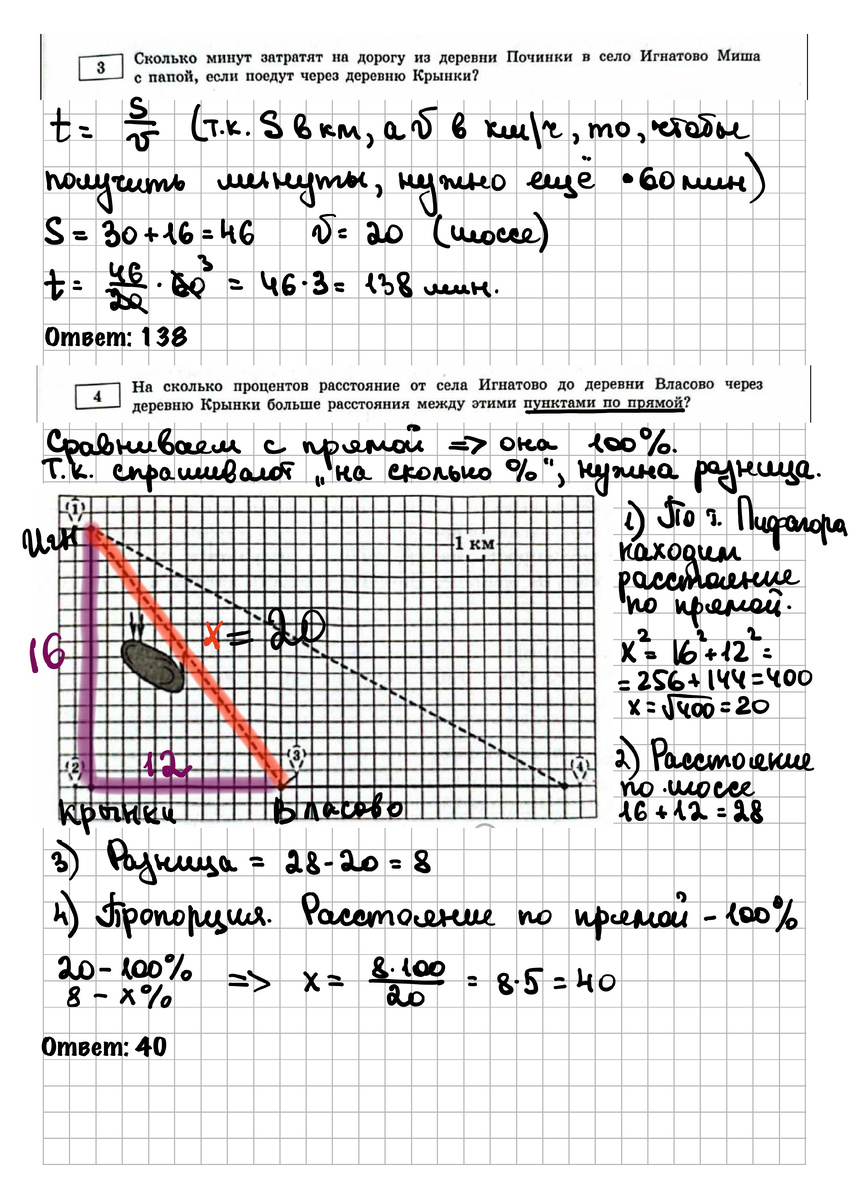 3
Сколько минут затратят на дорогу из деревни Починки в село Игнатово Миша
с папой, если поедут через деревню Крынки?
t = S/v (т.к. S в км, а v в км/ч, то, чтобы
получить минуты, нужно ещё • 60 мин)
S = 30+16=46 v = 20 (шоссе)
t = 46/20 · 60 3 = 46·3 = 138 мин.
Ответ: 138
4
На сколько процентов расстояние от села Игнатово до деревни Власово через
деревню Крынки больше расстояния между этими пунктами по прямой?
Сравниваем с прямой => она 100%.
Т.к. спрашивают „на сколько %“, нужна разница.
(1)
Игн
1 км
16
x = 20
12
(2)
(3)
(4)
Крынки
Власово
1) По т. Пифагора
находим
расстояние
по прямой.
x² = 16² + 12² =
= 256 + 144 = 400
x = √400 = 20
2) Расстояние
по шоссе
16 + 12 = 28
3) Разница = 28 - 20 = 8
4) Пропорция. Расстояние по прямой - 100%
20 - 100%
8 - x%
=> x = 8·100/20 = 8·5 = 40
Ответ: 40